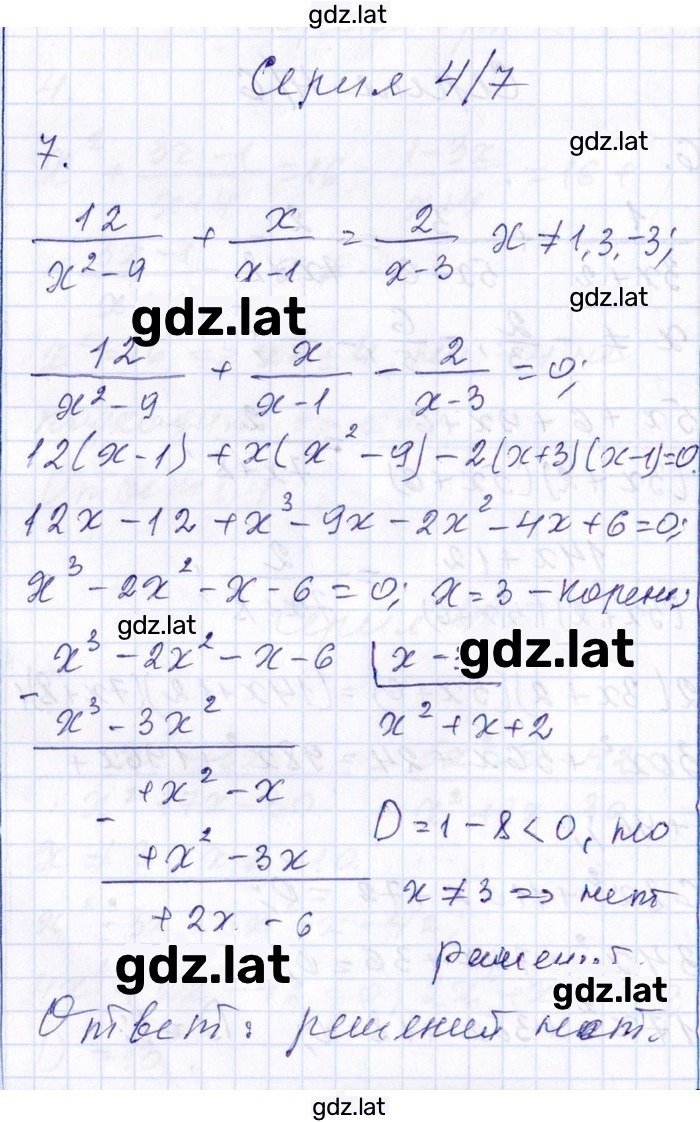 gdz.lat
Серия 4/7
7. gdz.lat
12/(x²-9) + x/(x-1) = 2/(x-3) x ≠ 1, 3, -3;
gdz.lat gdz.lat
12/(x²-9) + x/(x-1) - 2/(x-3) = 0;
12(x-1) + x(x²-9) - 2(x+3)(x-1)=0.
12x - 12 + x³ - 9x - 2x² - 4x + 6 = 0;
x³ - 2x² - x - 6 = 0; x = 3 - корень;
gdz.lat gdz.lat
x³ - 2x² - x - 6 | x -
- x³ - 3x² x² + x + 2
+x² - x
- +x² - 3x D = 1 - 8 < 0, но
+ 2x - 6 x ≠ 3 => нет
gdz.lat решений.
gdz.lat
Ответ: решений нет.
gdz.lat